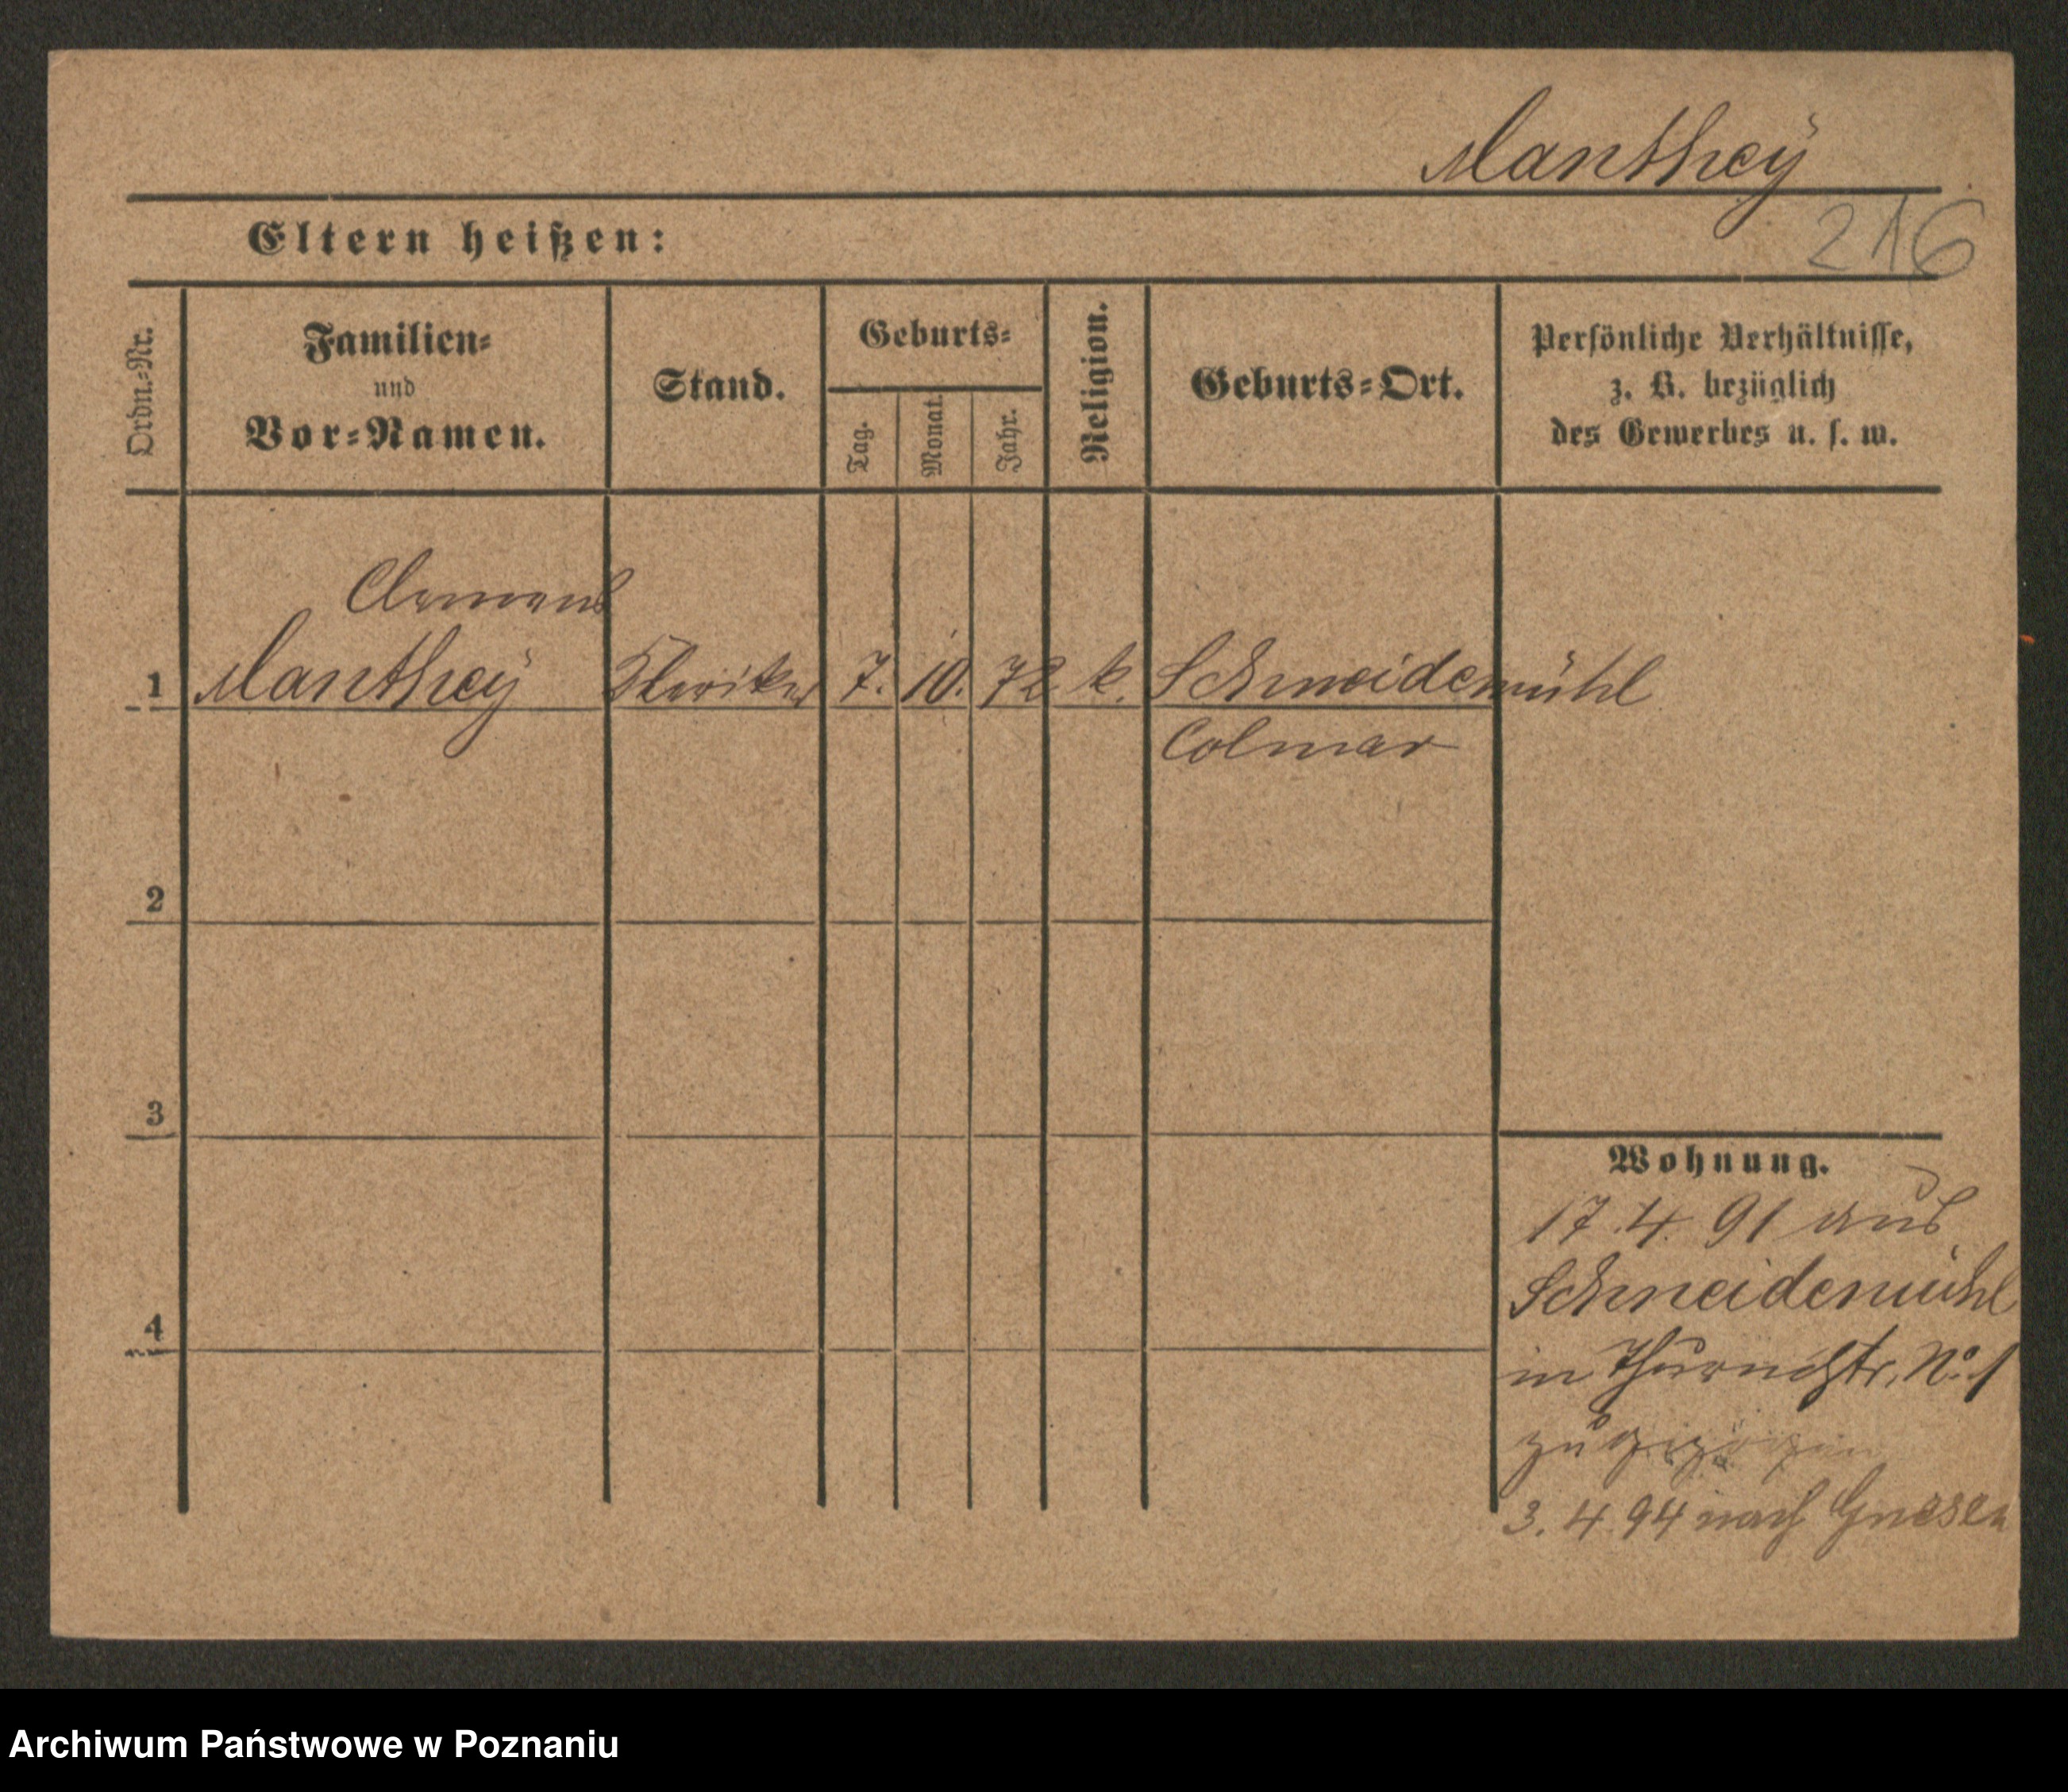 Manthey
216
Eltern heißen:
Ordn.-Nr.
Familien-
und
Vor-Namen.
Stand.
Geburts-
Tag.
Monat.
Jahr.
Religion.
Geburts-Ort.
Persönliche Verhältnisse,
z. B. bezüglich
des Gewerbes u. s. w.
Clemens
1 Manthey Kleriker 7. 10. 72 k. Schneidemühl
Colmar
2
3
4
Wohnung.
17.4.91 aus
Schneidemühl
in Thurmstr. No. 1
zugezogen
3.4.94 nach Gnesen
Archiwum Państwowe w Poznaniu